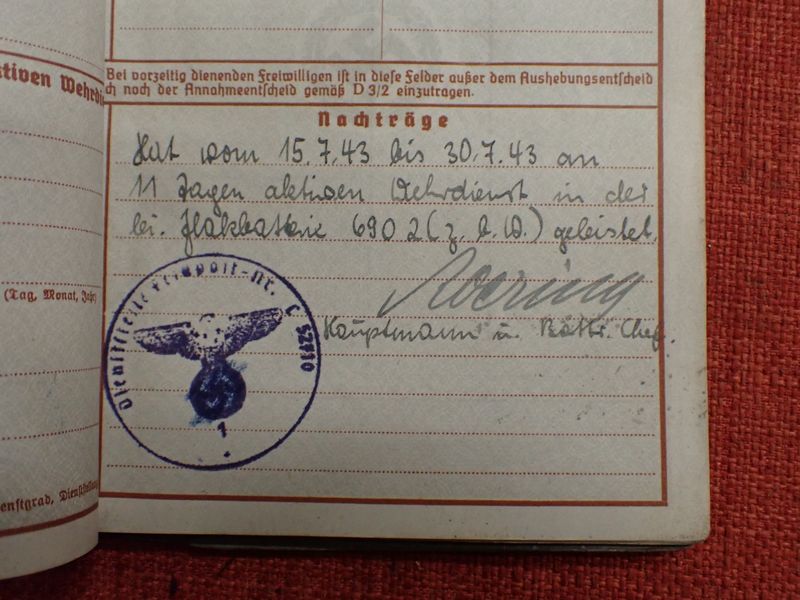 ktiven Wehrdie
Bei vorzeitig dienenden Freiwilligen ist in diese Felder außer dem Aushebungsentscheid
ch noch der Annahmeentscheid gemäß D 3/2 einzutragen.
Nachträge
Hat vom 15.7.43 bis 30.7.43 an
11 Tagen aktiven Wehrdienst in der
lei. Flakbatterie 6902 (z.b.V.) geleistet.
(Tag, Monat, Jahr)
Dienststelle Feldpost-Nr. L 52810
Hauptmann u. Battr. Chef.
1
enstgrad, Dienststellung